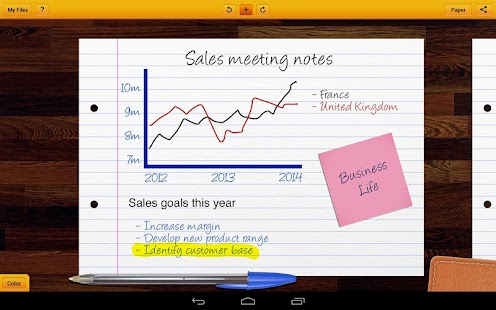 My Files
?
Paper
Sales meeting notes
10m
9m
8m
7m
2012 2013 2014
- France
- United Kingdom
Business
Life
Sales goals this year
- Increase margin
- Develop new product range
- Identify customer base
Color